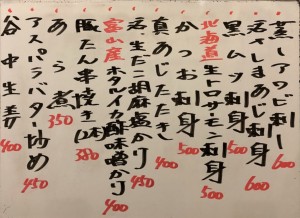 蒸しアワビ刺し 600
活〆しまあじ刺身 600
黒ムツ刺身 500
北海道生トロサーモン刺身 500
かつお刺身 500
真あじたたき 400
活、生だこ胡麻塩かけ 450
富山産ホタルイカ酢味噌かけ 400
豚たん串焼き(2本) 380
あら煮 350
アスパラバター炒め 450
谷中生姜 400